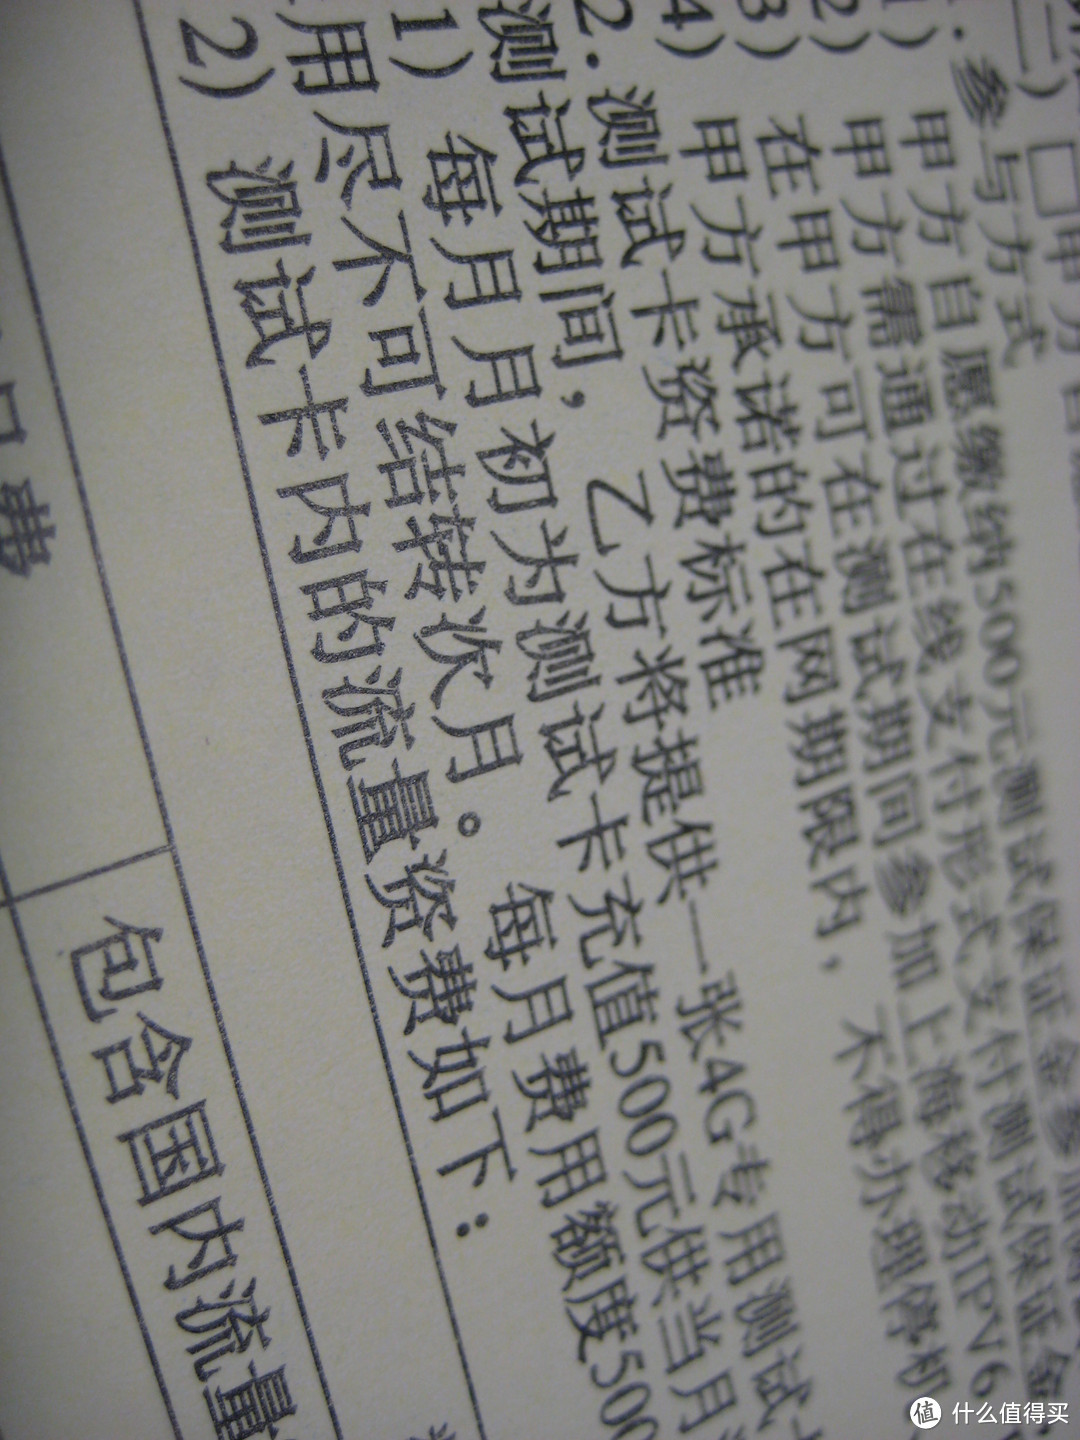 二）□甲方自
1. 参与方式
1） 甲方自愿缴纳500元测试保证金参加
2） 甲方需通过在线支付形式支付测试保证金
3） 在甲方可在测试期间参加上海移动IPV6
4） 甲方承诺的在网期限内，不得办理停机
2. 测试卡资费标准
测试期间，乙方将提供一张4G专用测试卡
1） 每月月初为测试卡充值500元供当月
用尽不可结转次月。每月费用额度500
2） 测试卡内的流量资费如下：
费
包含国内流量
值 什么值得买